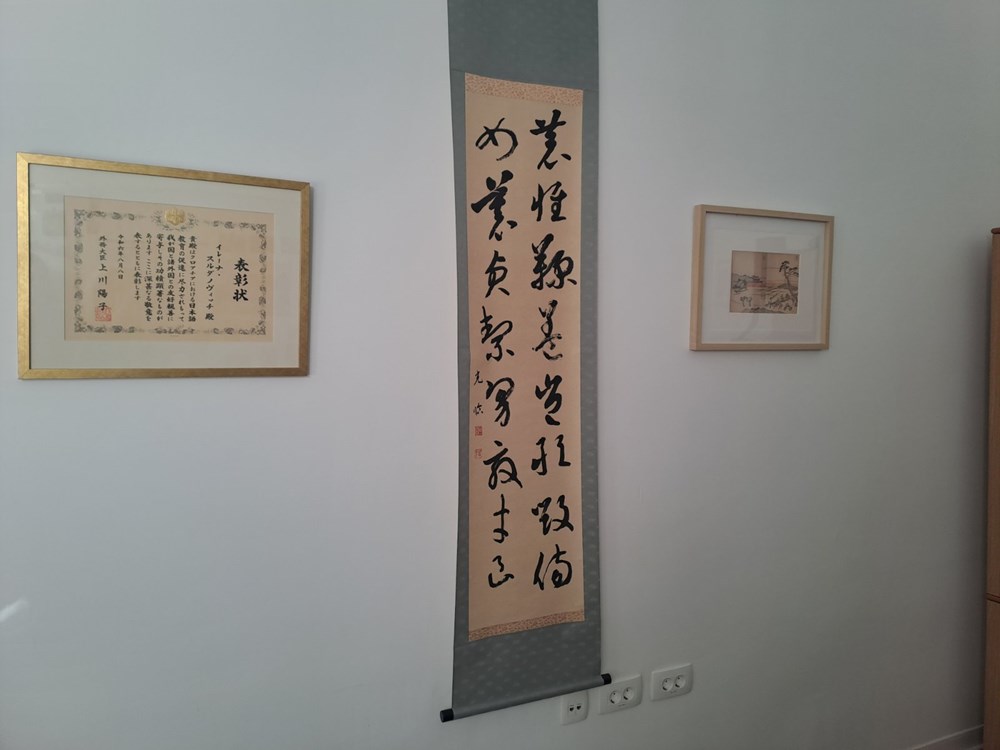 表彰状
イレーナ・
スルダノヴィッチ 殿
貴殿はクロアチアにおける日本語
教育の促進に尽力されもって
我が国と諸外国との友好親善に
寄与しその功績顕著なものが
あります ここに深甚なる敬意を
表するとともに表彰します
令和六年八月八日
外務大臣 上川陽子
恭惟鞠養豈敢毀傷
女慕貞絜男效才良